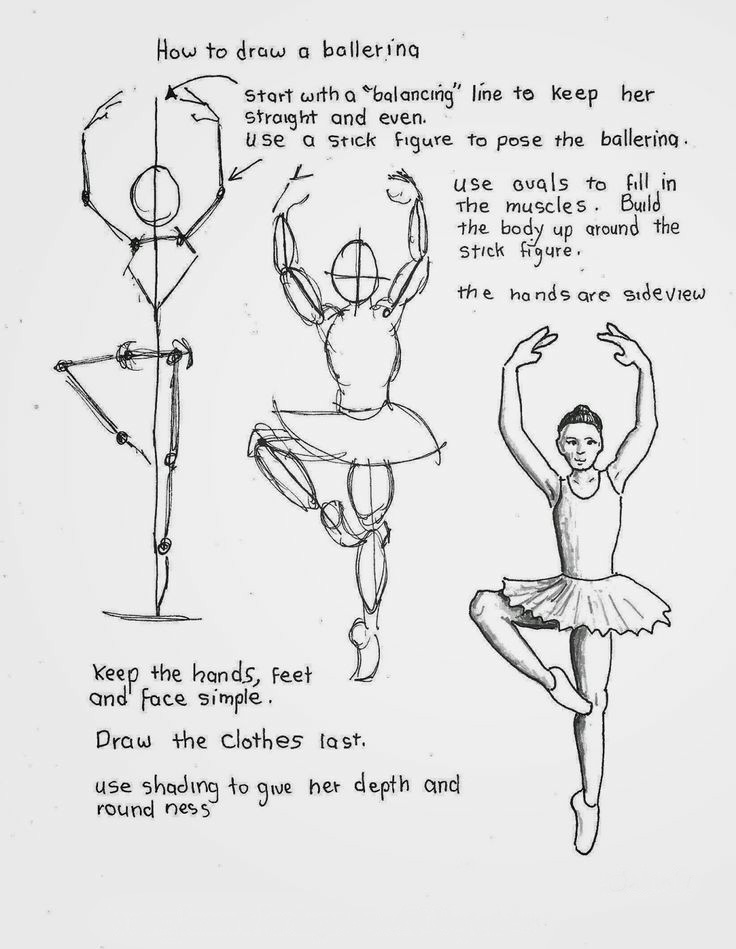 How to draw a ballerina
Start with a "balancing" line to keep her
straight and even.
use a stick figure to pose the ballerina.
use ovals to fill in
The muscles. Build
the body up around the
stick figure.
the hands are sideview
Keep the hands, feet
and face simple.
Draw the clothes last.
use shading to give her depth and
round ness